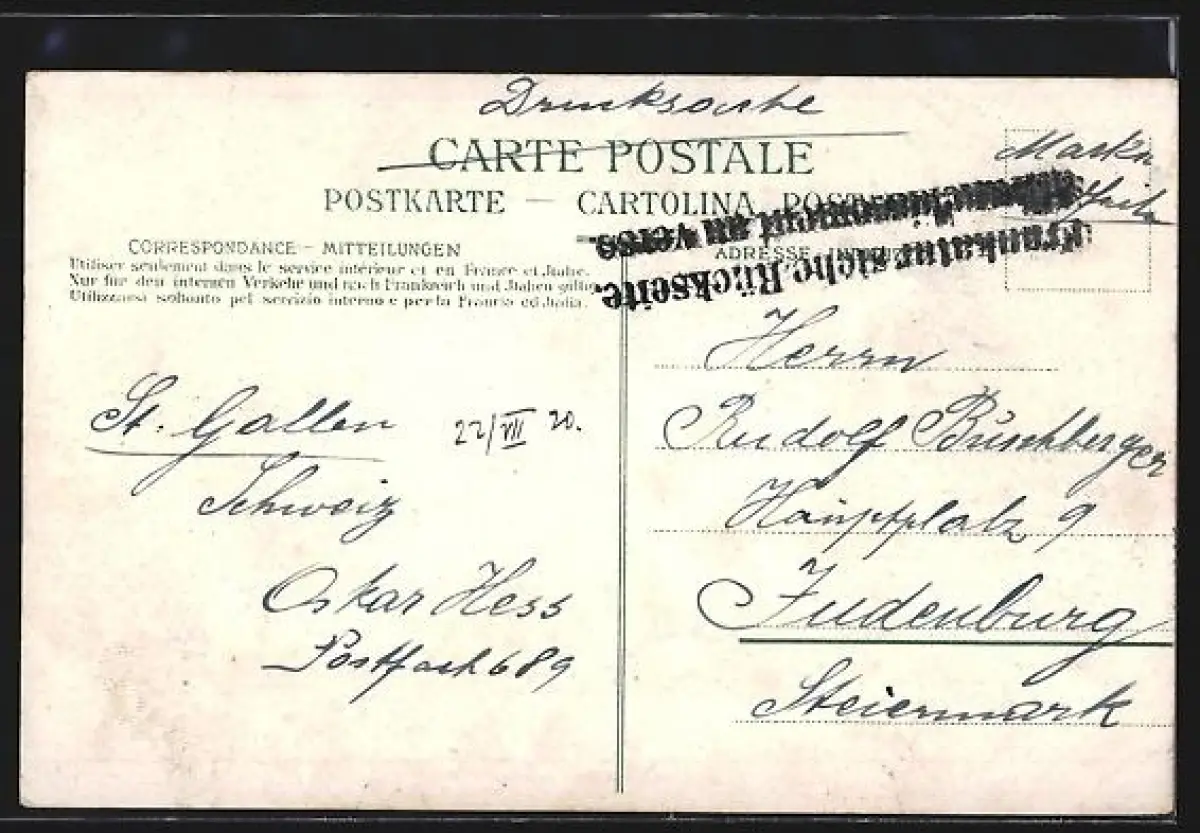 Drucksache
CARTE POSTALE
POSTKARTE — CARTOLINA POST
Marken
CORRESPONDANCE – MITTEILUNGEN
Utiliser seulement dans le service intérieur et en France et Italie.
Nur für den internen Verkehr und nach Frankreich und Italien gültig
Utilizzarsi soltanto pel servizio interno e per la Francia ed Italia.
ADRESSE
Affranchissement au verso.
Frankatur siehe Rückseite.
St. Gallen 22/VII 20.
Schweiz
Oskar Hess
Postfach 689
Herrn
Rudolf Buschberger
Hauptplatz 9
Judenburg
Steiermark